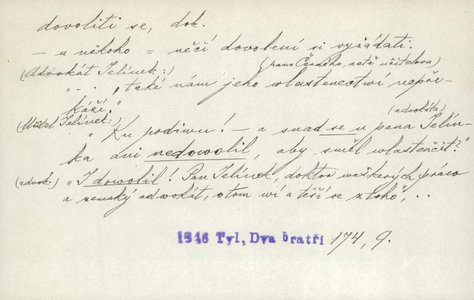 dovoliti se, dok.
— u někoho = něčí dovolení si vyžádati.
(Advokát Jelínek:) (pana Černého, učitelova)
"- - , také nám jeho vlastenectví nepře-
káží."
(Učitel Jelínek:) (advokáta)
"Ku podivu! — a snad se u pana Jelín-
ka ani nedowolil, aby směl vlastenčit?"
(advok.) "I dowolil! Pan Jelínek, doktor weškerých práw
a zemský adwokát, o tom wí a těší se z toho, . .
1846 Tyl, Dva bratři 174, 9.